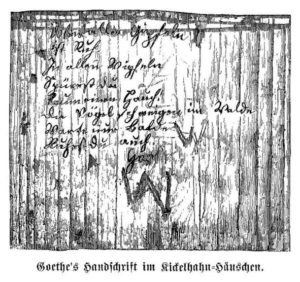 Über allen Gipfeln
ist Ruh
In allen Wipfeln
Spürest du
Kaum einen Hauch
Die Vögel schweigen im Walde
Warte nur Balde
Ruhest du auch
W
W
Goethe's Handschrift im Kickelhahn-Häuschen.